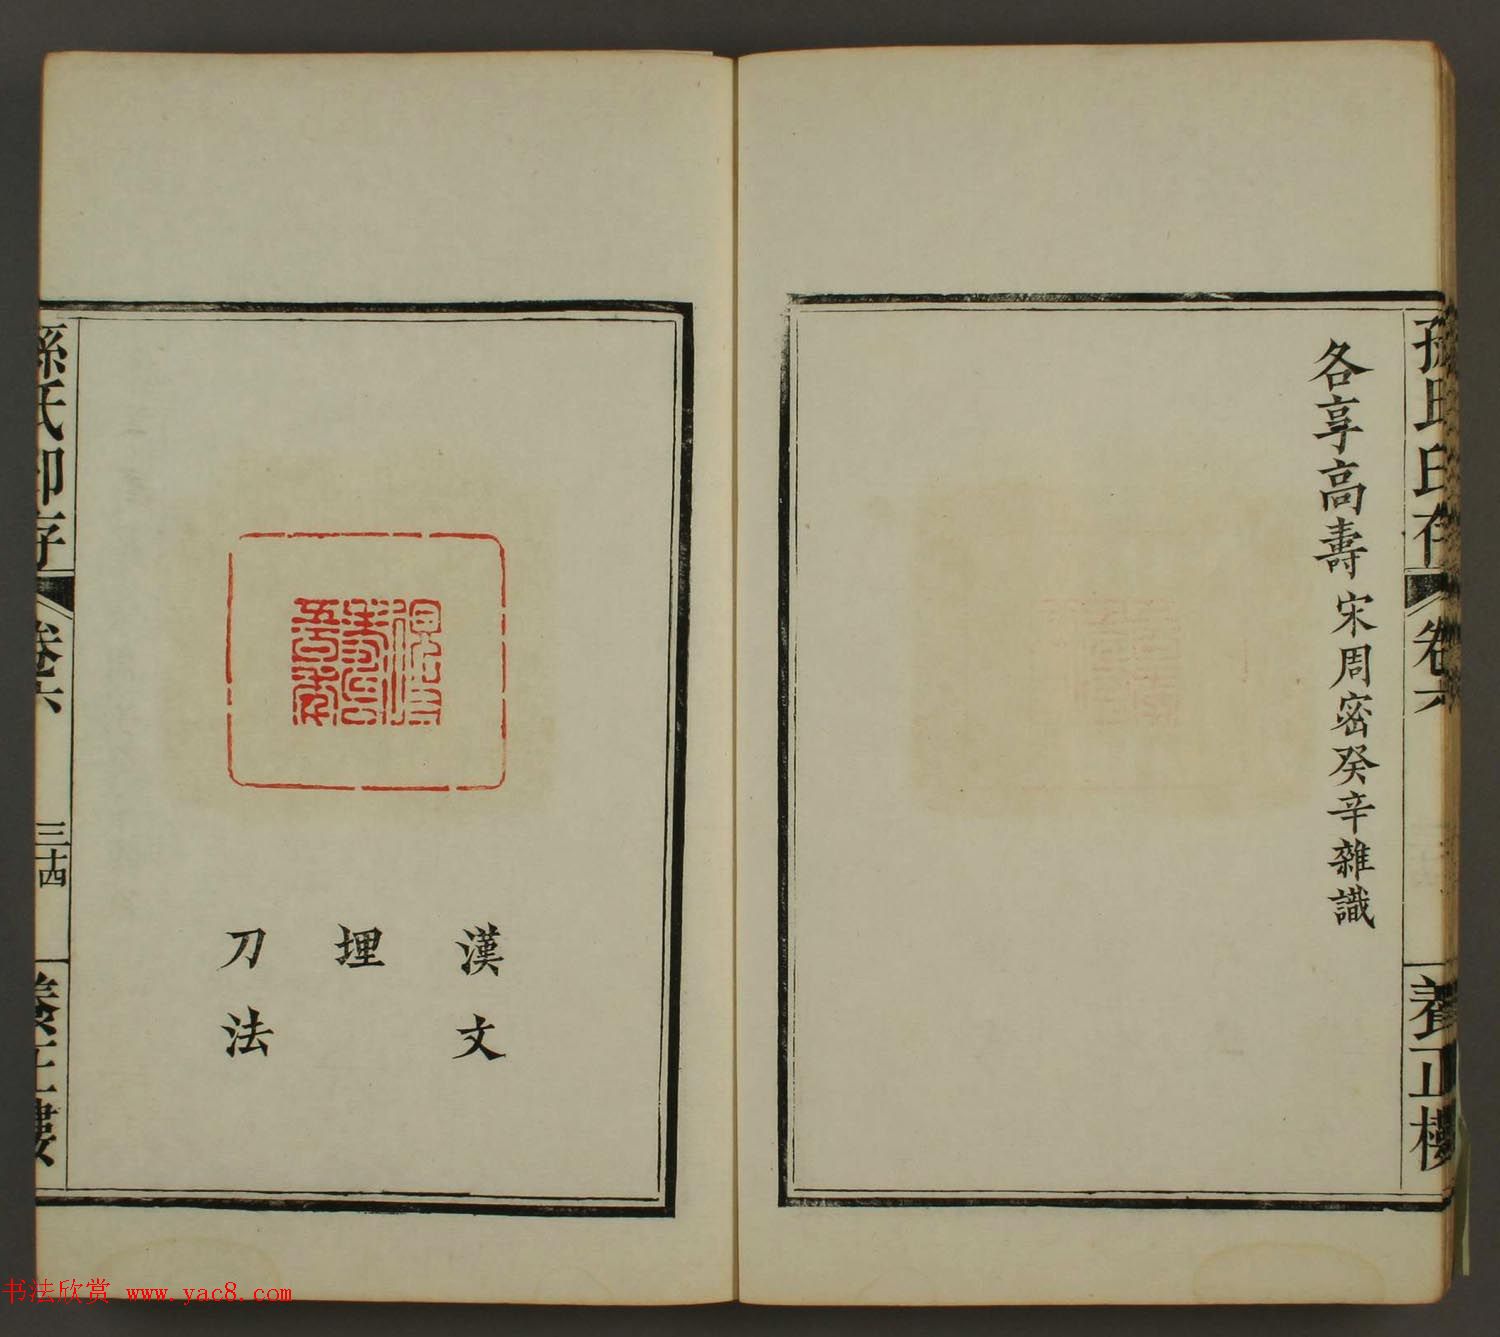 孫氏印存
卷六
養正樓
各享高壽 宋周密癸辛雜識
漢文
埋
刀法
孫氏印存
卷六
三十四
養正樓
书法欣赏 www.yac8.com